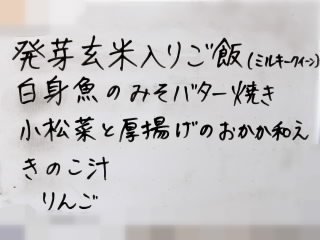 発芽玄米入りご飯(ミルキークイーン)
白身魚のみそバター焼き
小松菜と厚揚げのおかか和え
きのこ汁
りんご